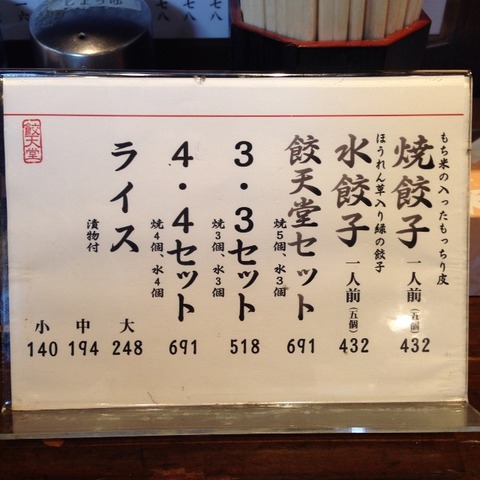 もち米の入ったもっちり皮
焼餃子 一人前(五個) 432
ほうれん草入り緑の餃子
水餃子 一人前(五個) 432
餃天堂セット 焼5個、水3個 691
3・3セット 焼3個、水3個 518
4・4セット 焼4個、水4個 691
ライス 漬物付
大 248
中 194
小 140
餃天堂